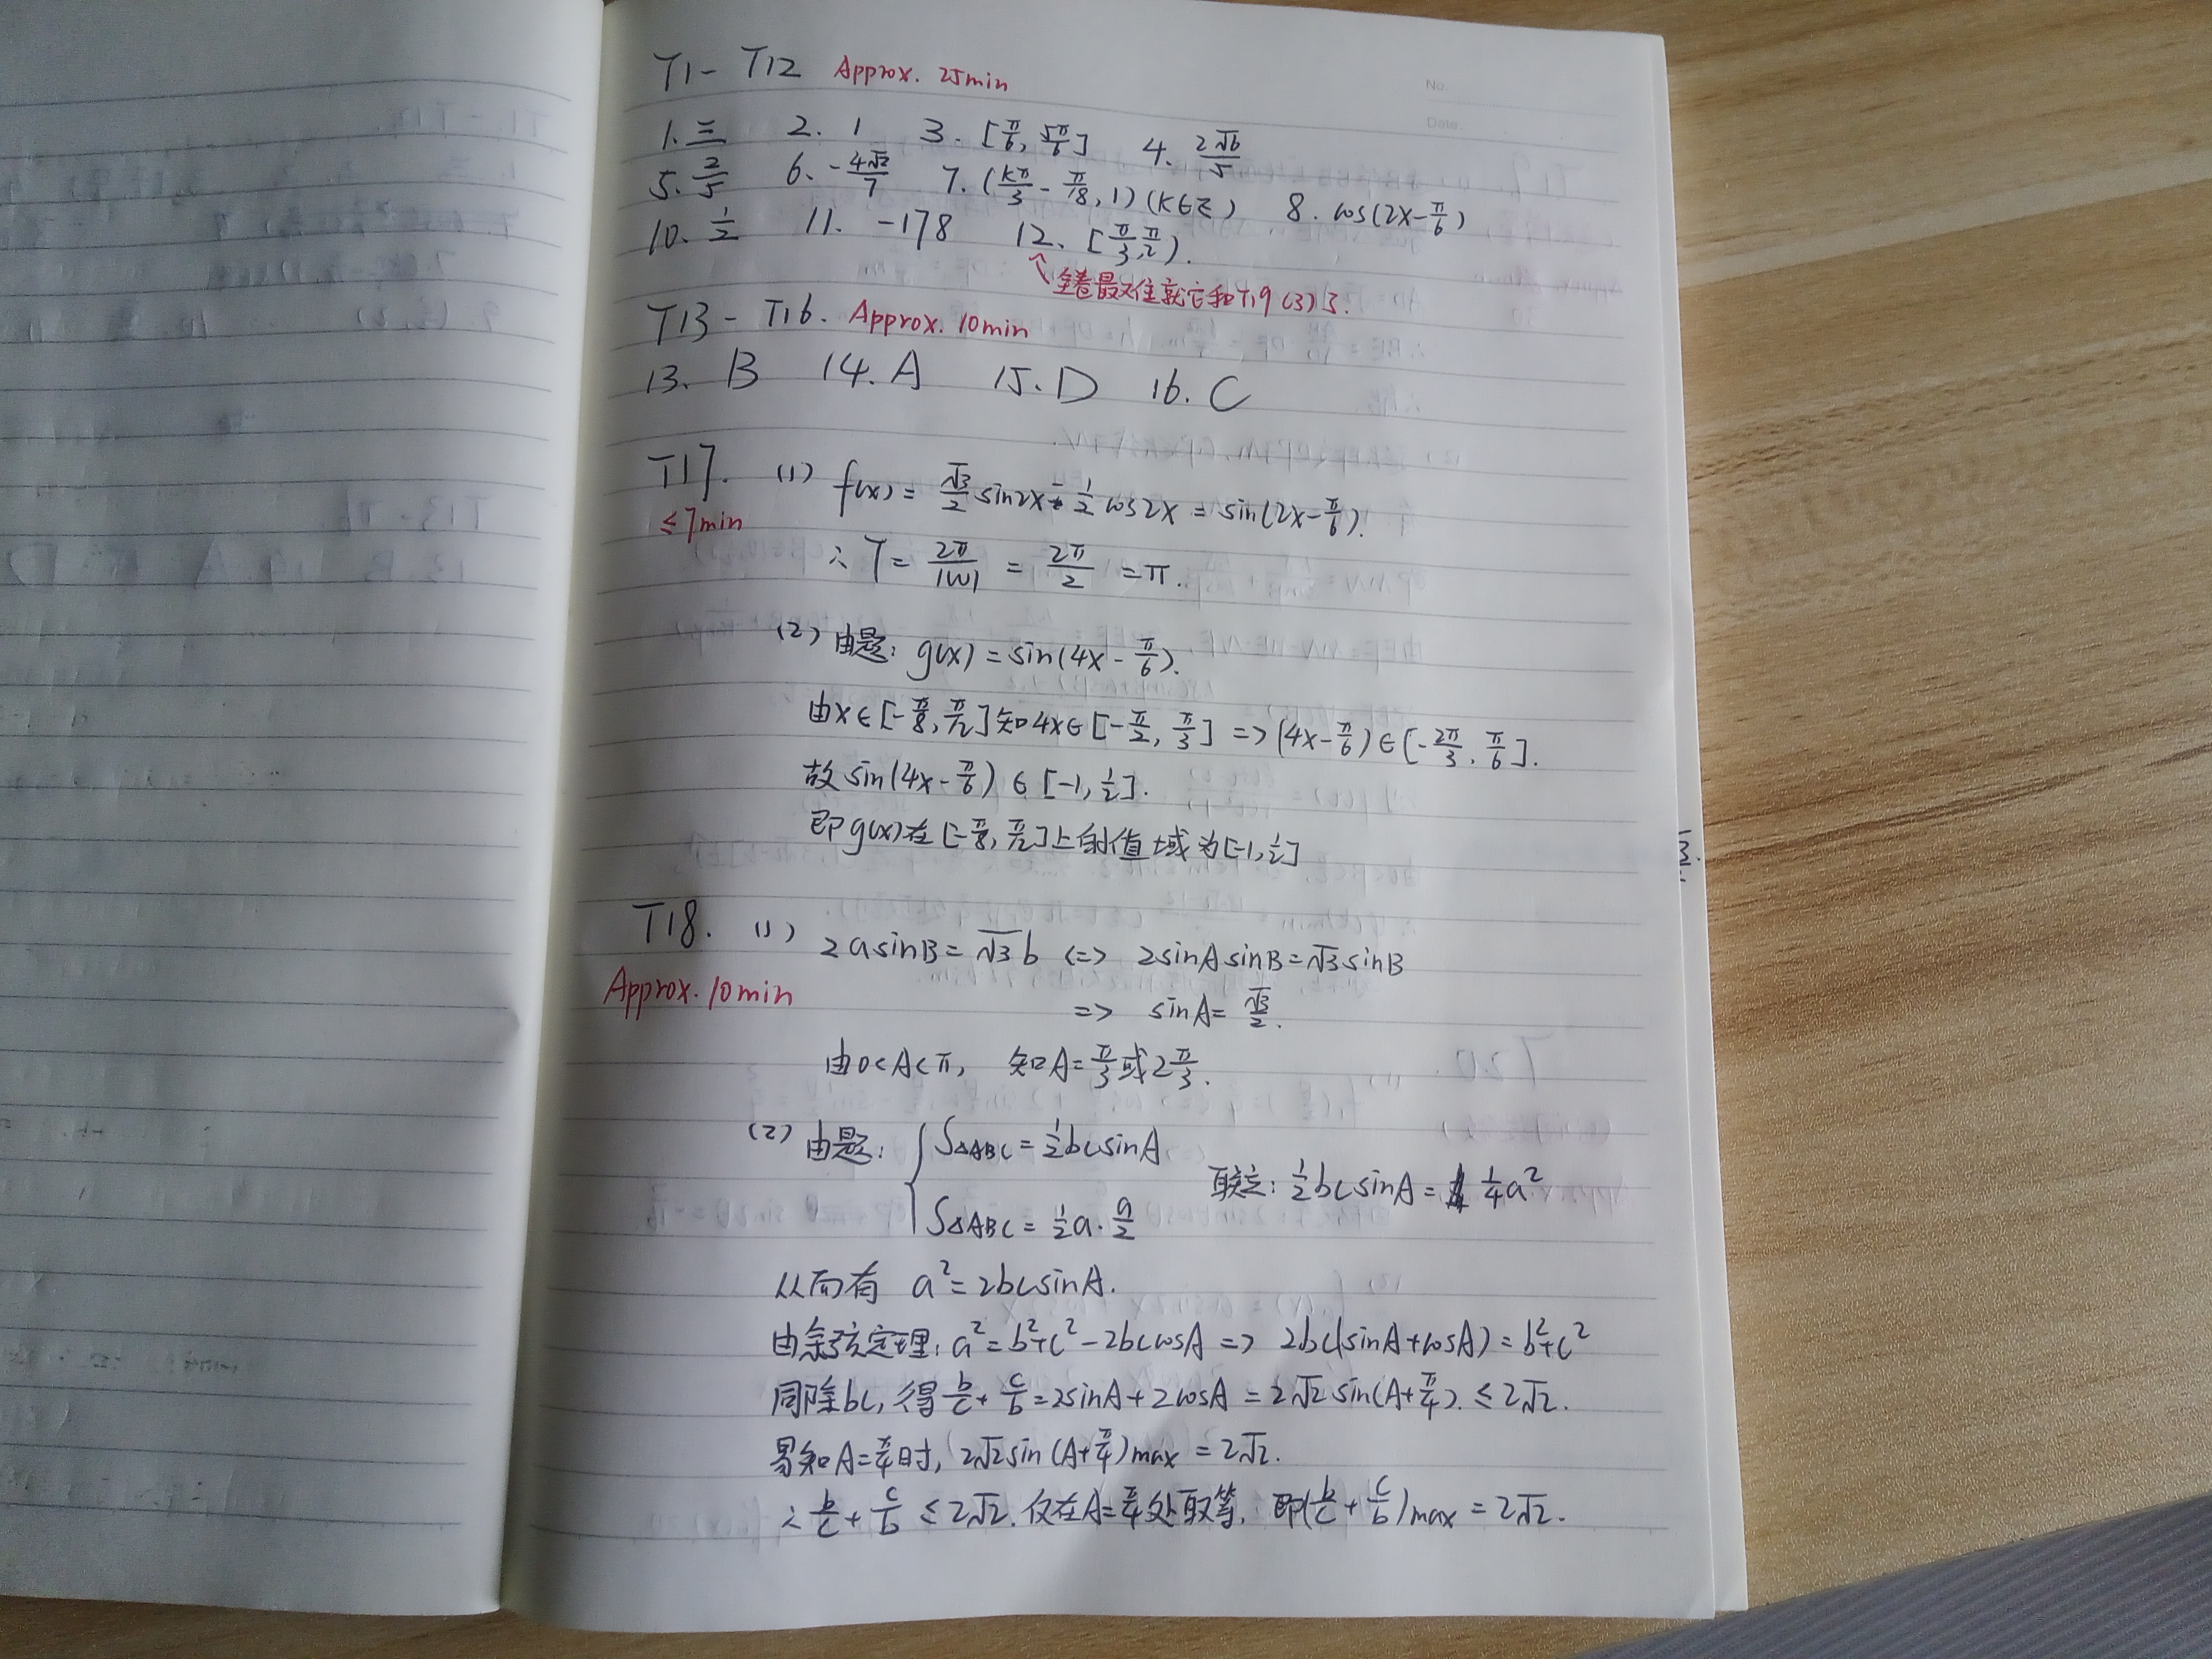 No.
Date.
T1- T12 Approx. 25min
1. 三 2. 1 3. [π/6, 5π/6] 4. 2√6/5
5. 2/5 6. -4√2/7 7. (kπ/3 - π/18, 1) (k∈Z) 8. cos(2x-π/6)
10. 1/2 11. -178 12. [π/3, π/2).
↑ 全卷最难就它和T19(3)了.
T13- T16. Approx. 10min
13. B 14. A 15. D 16. C
T17. (1) f(x) = √3/2 sin2x - 1/2 cos2x = sin(2x-π/6).
≤7min
∴ T = 2π/|ω| = 2π/2 = π.
(2) 由题: g(x) = sin(4x - π/6).
由x∈[-π/8, π/12]知4x∈[-π/2, π/3] => (4x-π/6)∈[-2π/3, π/6].
故sin(4x-π/6) ∈ [-1, 1/2].
即g(x)在[-π/8, π/12]上的值域为[-1, 1/2]
T18. (1) 2asinB = √3b <=> 2sinAsinB = √3sinB
Approx. 10min
=> sinA = √3/2.
由0<A<π, 知A = π/3或2π/3.
(2) 由题: { S△ABC = 1/2bcsinA
S△ABC = 1/2a·a/2
联立: 1/2bcsinA = 1/4a²
从而有 a² = 2bcsinA.
由余弦定理: a² = b²+c² - 2bccosA => 2bc(sinA+cosA) = b²+c²
同除bc, 得b/c + c/b = 2sinA + 2cosA = 2√2sin(A+π/4). ≤ 2√2.
易知A=π/4时, 2√2sin(A+π/4)max = 2√2.
∴ b/c + c/b ≤ 2√2. 仅在A=π/4处取等. 即(b/c + c/b)max = 2√2.